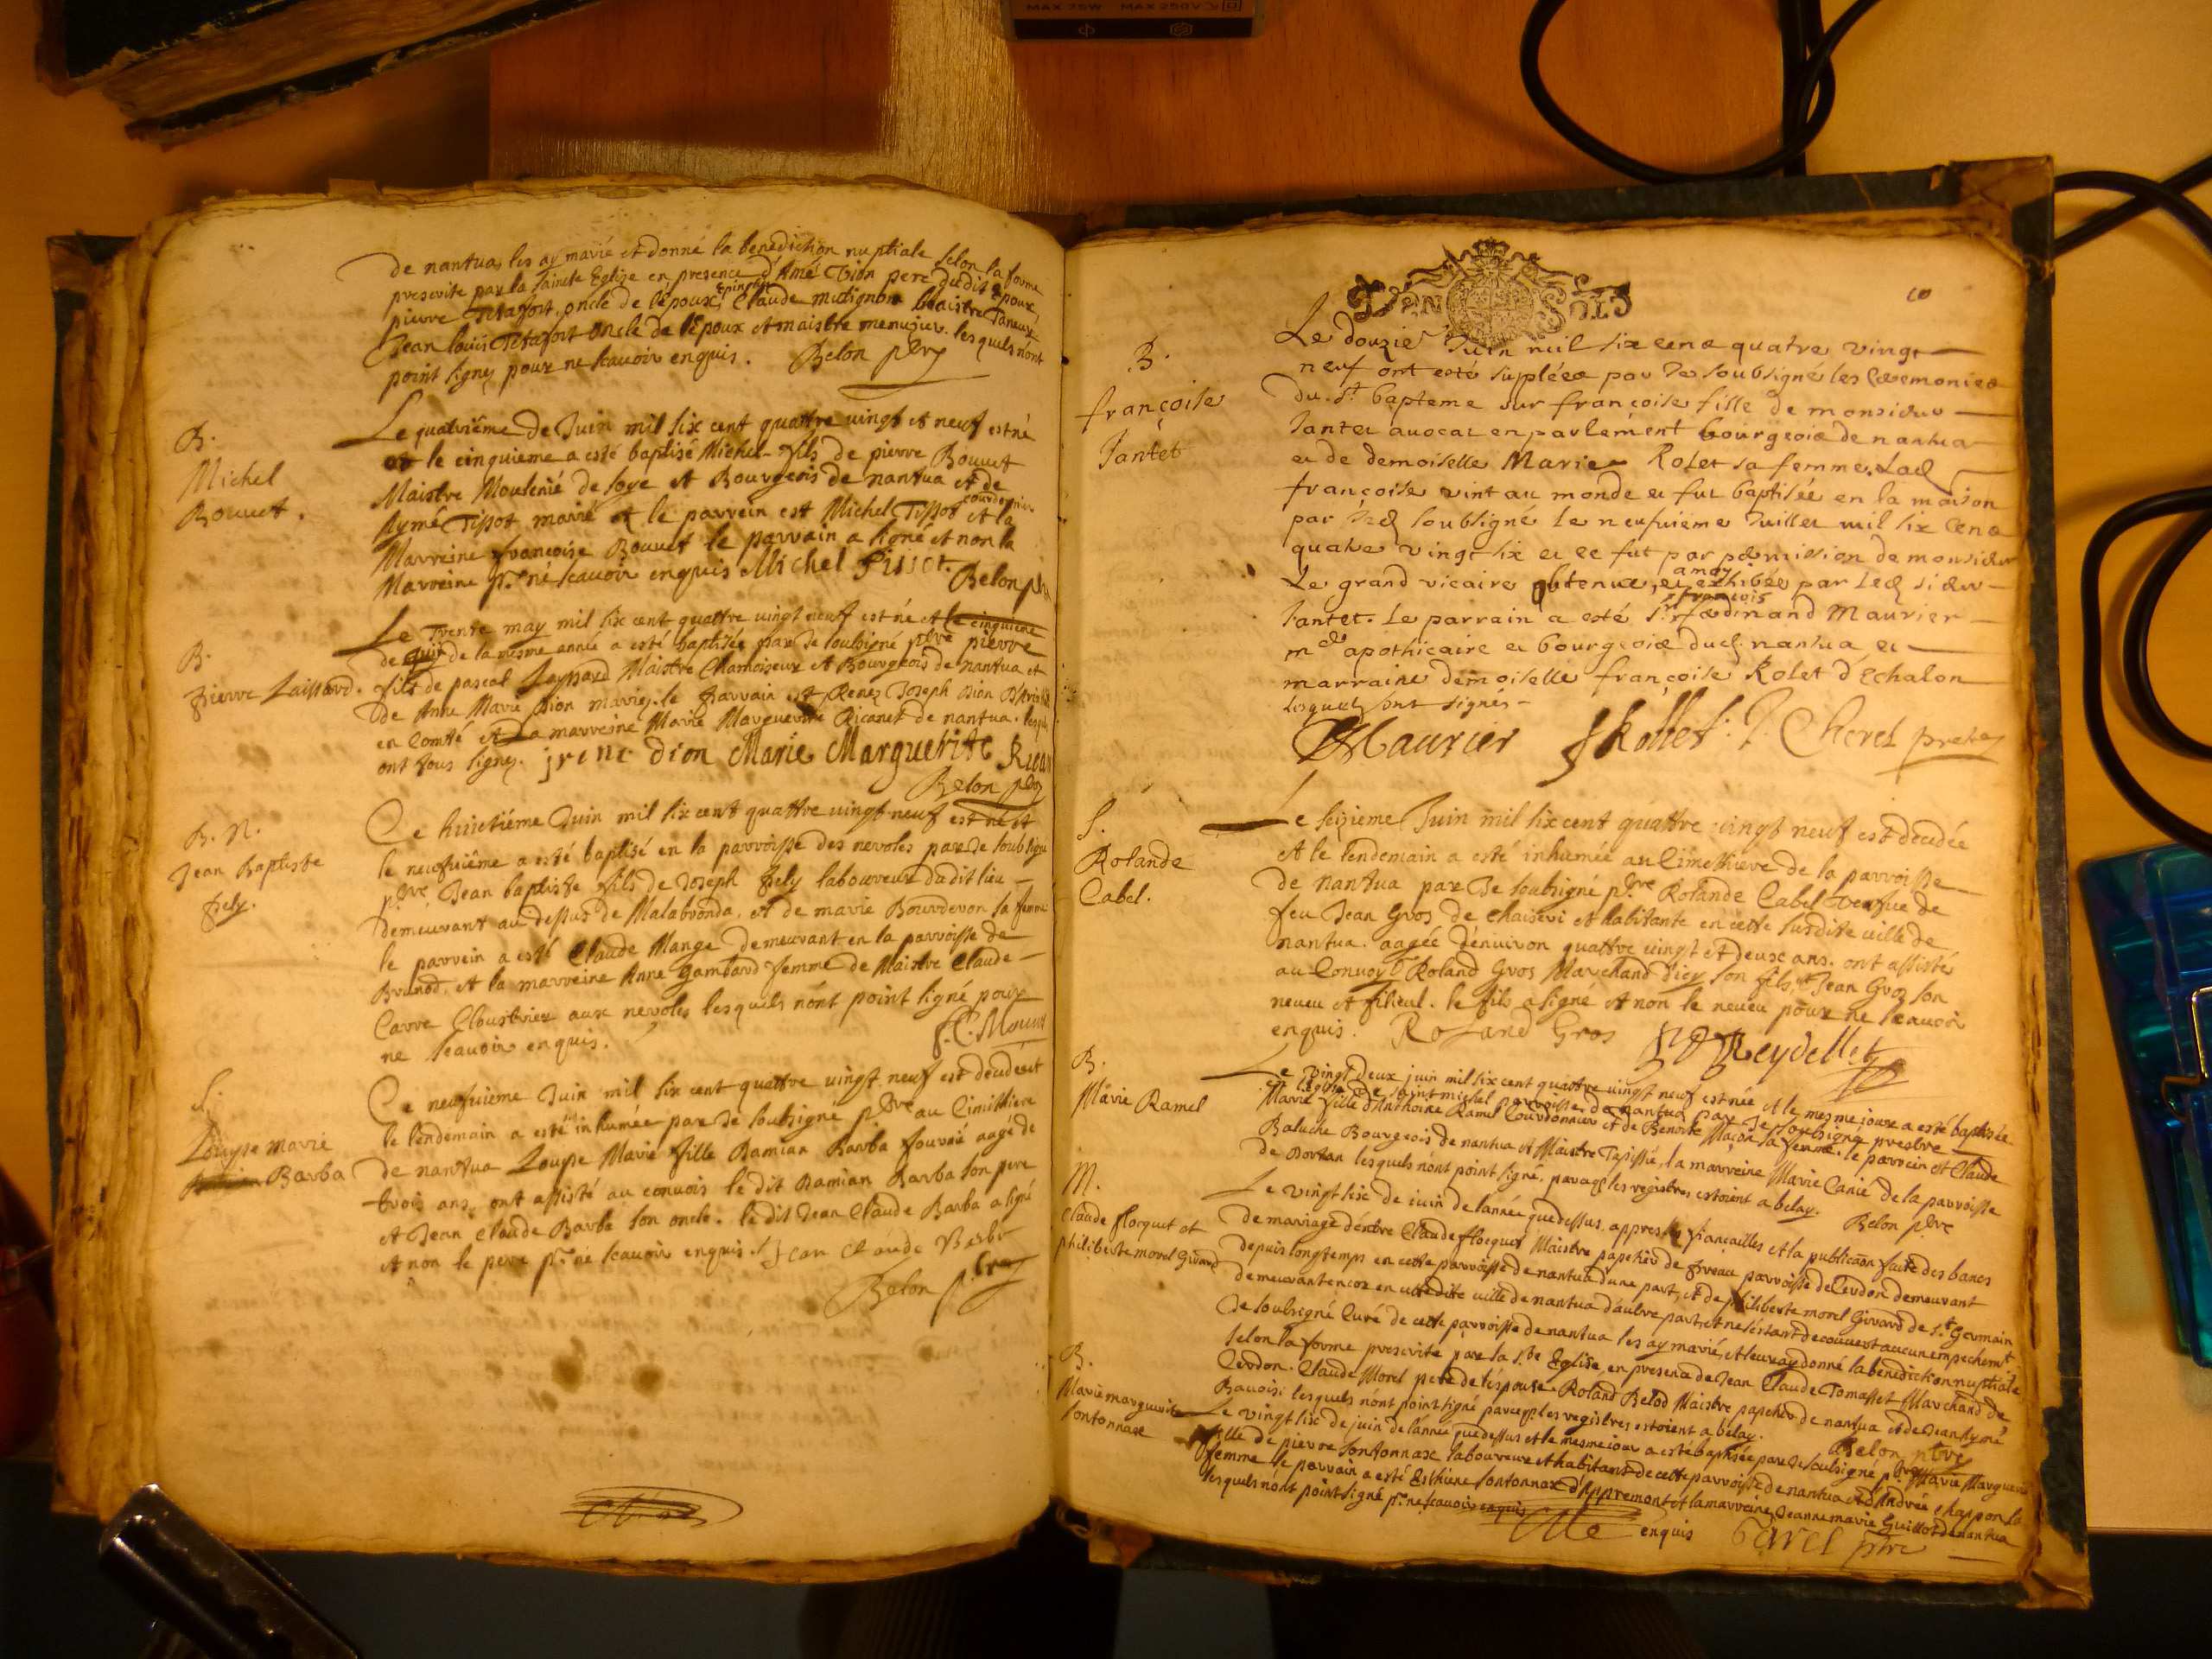 de nantua, les ay marié et donné la benediction nuptiale selon la forme
prescrite par la saincte Eglise en presence d'Amé Dion pere dudit Epoux,
pierre Tetafort oncle de l'Epoux, Epinglier Claude mutignon Maistre Taneur
Jean louis Tetafort oncle de l'Epoux et maistre menusier. lesquels n'ont
point signez pour ne scavoir enquis. Belon pbre
B.
Michel
Bouuet.
Le quatriéme de Juin mil six cent quattre uingt et neuf est né
et le cinquieme a esté baptisé Michel fils de pierre Bouuet
Maistre Moulenié de soye et Bourgeois de nantua et de
Aymé Tissot marié et le parrein est Michel Tissot courdonnier et la
Marreine francoise Bouuet le parrain a signé et non la
Marreine pr. ne scauoir enquis Michel Tissot. Belon pbre
B.
pierre Laissard.
Le Trente may mil six cent quattre uingt neuf est né et le cinquiene
de juin de la mesme année a esté baptisée par Je soubsigné pbre pierre
fils de pascal Layssard Maistre Chamoiseur et Bourgeois de nantua et
de Anne Marie Dion mariez. le parrain est Renez Joseph Dion
en Comté et La marreine Marie Marguerite Ricanet de nantua.
ont sous signez. jrene dion Marie Marguerite
Belon pbre
B. N.
Jean Baptiste
fely.
Ce huictiéme Juin mil six cent quattre uingt neuf est né et
le neufuiéme a esté baptisé en la parroisse des neyroles par Je soubsigné
pbre Jean baptiste fils de Joseph fely laboureur dudit lieu
demeurant au dessus de Malabronda, et de marie Bourderon sa femme
le parrein a esté Claude Mange demeurant en la parroisse de
Brenod, et la marreine Anne gambard femme de Maistre Claude
Carre Cloustrier aux neyroles lesquels n'ont point signé pour
ne scauoir enquis.
S.
Louyse marie
Barba
Ce neufuieme Juin mil six cent quattre uingt neuf est decdee et
le lendemain a esté inhumée par Je soubsigné pbre au Cimithiere
de nantua Louyse Marie fille Damian Barba fourié aagé de
trois ans, ont assisté au conuois le dit Damian Barba son pere
et Jean Claude Barba son oncle. le dit Jean Claude Barba a signé
et non le pere pr. ne scauoir enquis. Jean Claude Barba
Belon pbre
10
B.
françoise
Jantet
Le douzie Juin mil six cens quatre vingt
neuf ont esté supléés par Je soubsigné les Ceremonies
du St bapteme sur françoise fille de monsieur
Jantet auocat en parlement bourgeois de nantua
et de demoiselle Marie Rolet sa femme. Lad
françoise vint au monde et fut baptisée en la maison
par Jed soubsigné le neufuiéme Juillet mil six Cens
quatre vingt six et ce fut par permission de monsieur
Le grand vicaire obtenue, et a moy exhibée par Led sieur
Jantet. Le parrain a esté Sr françois ferdinand Maurier
md apothicaire et bourgeois dud. nantua et
marraine demoiselle françoise Rolet d'Echalon
Lesquels ont signés
Maurier fRollet. Cherel pretre
S.
Rolande
Cabel.
Le seizieme Juin mil six cent quattre uingt neuf est decedée
et le lendemain a esté inhumée au Cimethiere de la parroisse
de nantua par Je soubsigné pbre Rolande Cabel veufue de
feu Jean Gros de Chaiseri et habitante en cette susdite uille de
nantua. aagée d'enuiron quattre uingt et deux ans. ont assisté
au Conuoy Roland Gros Marchand d'icy son fils, et Jean Gros son
neueu et filieul. le fils a signé et non le neueu pour ne scauoir
enquis. Roland Gros Reydellet
B.
Marie Ramel
Le vingt deux juin mil six cent quattre uingt neuf est née et le mesme jour a esté baptisée
en l'eglise de saint michel parroisse de nantua par Je soubsigné prestre
Marie fille d'Anthoine Ramel Courdonnier et de Benoite Maçon sa femme. le parrein est Claude
Baluche Bourgeois de nantua et Maistre Tapissié, la marreine Marie Canié de la parroisse
de Dortan lesquels n'ont point signé, parceq les registres estoient a belay. Belon pbre
M.
Claude florquet et
philiberte morel Girard
Le vingt six de iuin de l'année que dessus. appres les fiancailles et la publicaon faite des bancs
de mariage d'entre Claude flocquet Maistre papetier de preau parroisse de Cerdon demeurant
depuis longtemps en cette parroisse de nantua d'une part, et de philiberte morel Girard de St. Germain
demeurant encor en cettedite uille de nantua d'autre part. et ne s'estant decouuert aucun empechemt
Je soubsigné Curé de cette parroisse de nantua les ay marié, et leur ay donné la benediction nuptiale
selon la forme prescrite par la Ste Eglise en presence de Jean Claude Tomasset Marchand de
Cerdon. Claude Morel pere de l'espouse Roland Belod Maistre papetier de nantua et de Jean Aymé
Bauoisi lesquels n'ont point signé parceq les registres estoient a belay. Belon pbre
B.
Marie marguerite
sontonnax
Le vingt six de juin de l'année que dessus et le mesme iour a esté baptisée par Je soubsigné pbre Marie Marguerite
fille de pierre sontonnax laboureur et habitant de cette parroisse de nantua et d'Andrée chappon sa
femme le parrain a esté Esthiene sontonnax d'Appremont et la marreine Jeanne marie Guillot de nantua
lesquels n'ont point signé pr. ne scauoir enquis
enquis Carel pbre